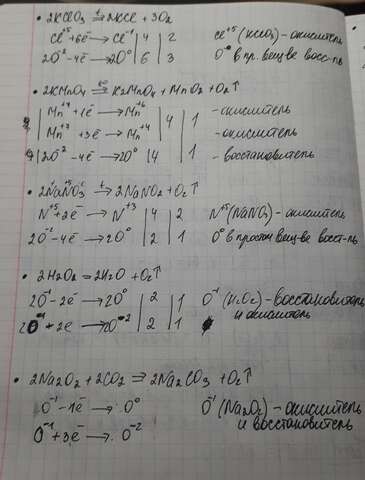 • 2KClO₃ =ᵗ 2KCl + 3O₂
Cl⁺⁵+6ē → Cl⁻¹ | 4 | 2 Cl⁺⁵ (KClO₃) – окислитель
2O⁻²-4ē → 2O⁰ | 6 | 3 O⁰ в пр. вещ-ве восст-ль
• 2KMnO₄ → K₂MnO₄ + MnO₂ + O₂↑
Mn⁺⁷+1ē → Mn⁺⁶ | 4 | 1 – окислитель
Mn⁺⁷ +3ē → Mn⁺⁴ – окислитель
2O⁻² -4ē → 2O⁰ | 4 | 1 – восстановитель
• 2NaNO₃ →ᵗ 2NaNO₂ + O₂↑
N⁺⁵+2ē → N⁺³ | 4 | 2 N⁺⁵(NaNO₃) – окислитель
2O⁻²-4ē → 2O⁰ | 2 | 1 O⁰ в простом вещ-ве восст-ль
• 2H₂O₂ = 2H₂O + O₂↑
2O⁻¹-2ē → 2O⁰ | 2 | 1 O⁻¹ (H₂O₂) – восстановитель
2O⁻¹+2ē → 2O⁻² | 2 | 1 и окислитель
• 2Na₂O₂ + 2CO₂ ⇒ 2Na₂CO₃ + O₂↑
O⁻¹-1ē → O⁰ O⁻¹ (Na₂O₂) – окислитель
O⁻¹+3ē → O⁻² и восстановитель